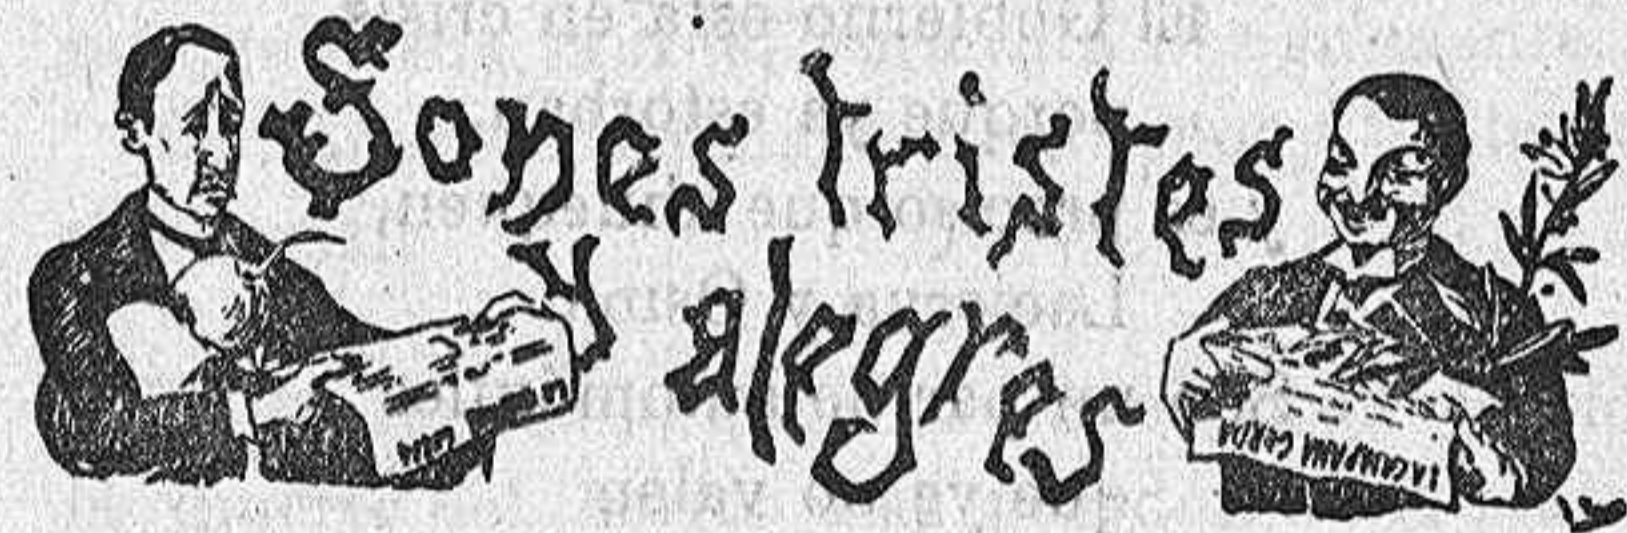 Sones tristes
y alegres
LA CAMPANA GORDA